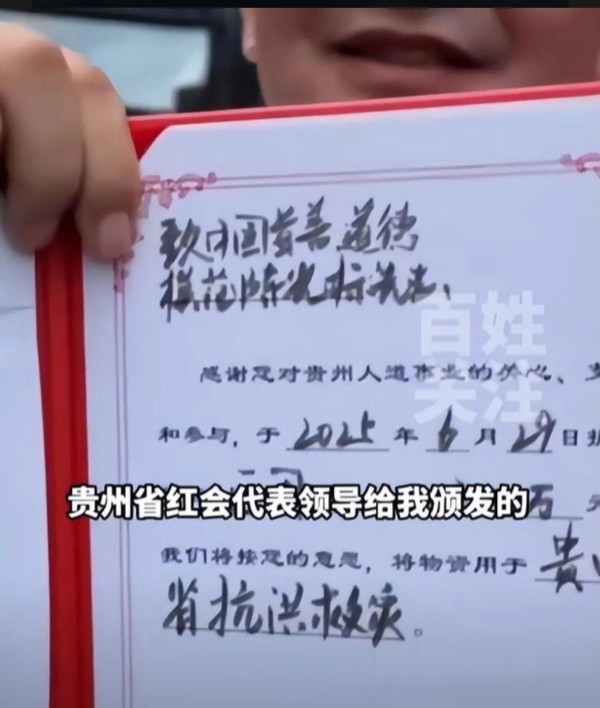 致中国首善道德
模范陈光标先生:
百姓
关注
感谢您对贵州人道事业的关心、支
和参与,于2025年6月29日捐
万元
贵州省红会代表领导给我颁发的
我们将按您的意愿,将物资用于贵
省抗洪救灾。